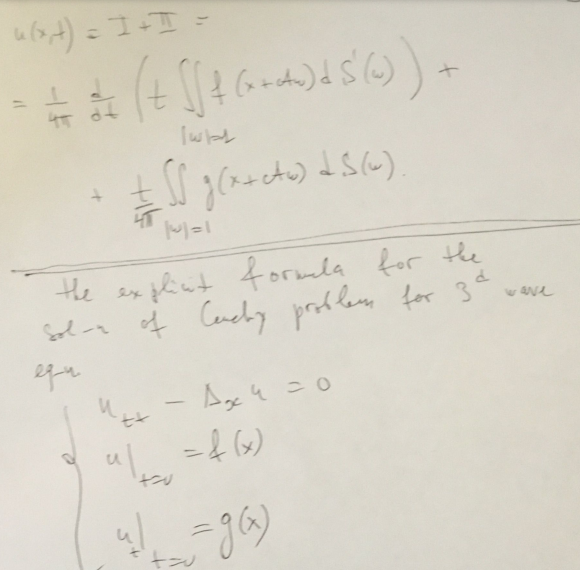 u(x,t) = I + II =
= 1/4π d/dt ( t ∬ f(x+ctω) dS(ω) ) +
|ω|=1
+ t/4π ∬ g(x+ctω) dS(ω).
|ω|=1
the explicit formula for the
sol-n of Cauchy problem for 3d wave
eq-n
{ u_tt − Δ_x u = 0
u|_t=0 = f(x)
u_t|_t=0 = g(x)